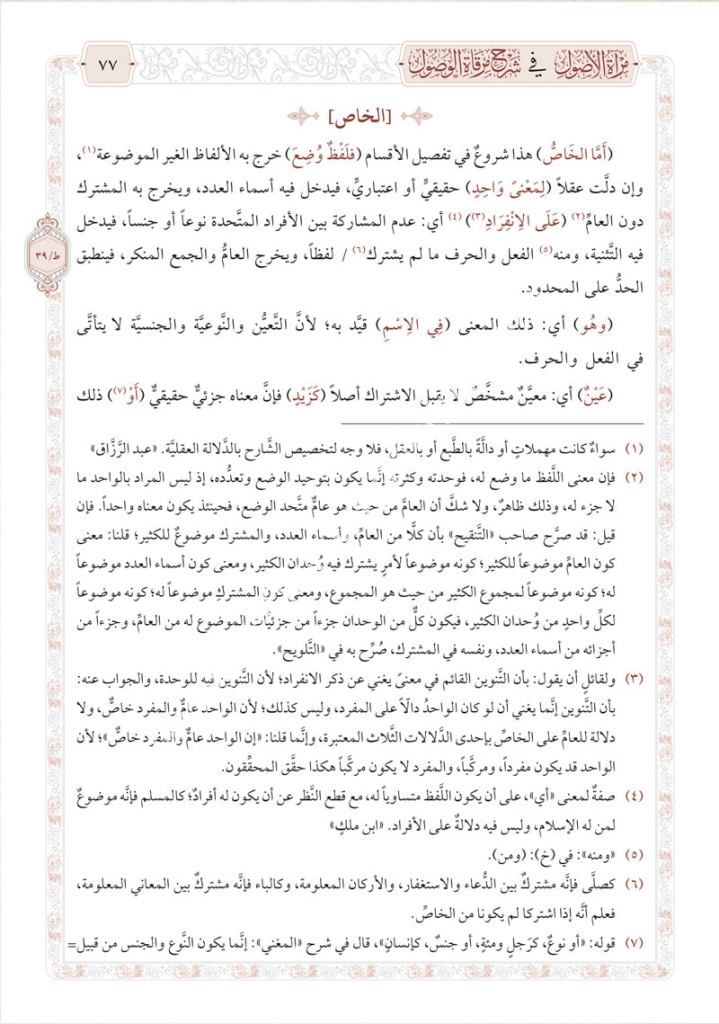 مرآة الأصول في شرح مرقاة الوصول
٧٧
[الخاص]
(أَمَّا الخَاصُّ) هذا شروعٌ في تفصيل الأقسام (فَلَفْظٌ وُضِعَ) خرج به الألفاظ الغير الموضوعة(١)،
وإن دلَّت عقلاً (لِمَعْنىً وَاحِدٍ) حقيقيٍّ أو اعتباريٍّ، فيدخل فيه أسماء العدد، ويخرج به المشترك
دون العامِّ(٢) (عَلَى الِانْفِرَادِ(٣)) (٤) أي: عدم المشاركة بين الأفراد المتَّحدة نوعاً أو جنساً، فيدخل
فيه التَّثنية، ومنه(٥) الفعل والحرف ما لم يشترك(٦) / لفظاً، ويخرج العامُّ والجمع المنكر، فينطبق
ظ/٣٩
الحدُّ على المحدود.
(وهُو) أي: ذلك المعنى (فِي الِاسْمِ) قيَّد به؛ لأنَّ التَّعيُّن والنَّوعيَّة والجنسية لا يتأتَّى
في الفعل والحرف.
(عَيْنٌ) أي: معيَّنٌ مشخَّصٌ لا يقبل الاشتراك أصلاً (كَزَيْدٍ) فإنَّ معناه جزئيٌّ حقيقيٌّ (أَوْ(٧)) ذلك
(١) سواءٌ كانت مهملاتٍ أو دالَّةً بالطَّبع أو بالعقل، فلا وجه لتخصيص الشَّارح بالدَّلالة العقليَّة. «عبد الرَّزَّاق»
(٢) فإن معنى اللَّفظ ما وضع له، فوحدته وكثرته إنَّما يكون بتوحيد الوضع وتعدُّده، إذ ليس المراد بالواحد ما
لا جزء له، وذلك ظاهرٌ، ولا شكَّ أن العامَّ من حيث هو عامٌّ متَّحد الوضع، فحينئذ يكون معناه واحداً. فإن
قيل: قد صرَّح صاحب «التَّنقيح» بأن كلًّا من العامِّ، وأسماء العدد، والمشترك موضوعٌ للكثير؛ قلنا: معنى
كون العامِّ موضوعاً للكثير؛ كونه موضوعاً لأمرٍ يشترك فيه وُحدان الكثير، ومعنى كون أسماء العدد موضوعاً
له؛ كونه موضوعاً لمجموع الكثير من حيث هو المجموع، ومعنى كون المشتركِ موضوعاً له؛ كونه موضوعاً
لكلِّ واحدٍ من وُحدان الكثير، فيكون كلٌّ من الوحدان جزءاً من جزئيَّات الموضوع له من العامِّ، وجزءاً من
أجزائه من أسماء العدد، ونفسه في المشترك، صُرِّح به في «التَّلويح».
(٣) ولقائلٍ أن يقول: بأن التَّنوين القائم في معنىً يغني عن ذكر الانفراد؛ لأن التَّنوين فيه للوحدة، والجواب عنه:
بأن التَّنوين إنَّما يغني أن لو كان الواحدُ دالًا على المفرد، وليس كذلك؛ لأن الواحد عامٌّ والمفرد خاصٌّ، ولا
دلالة للعامِّ على الخاصِّ بإحدى الدَّلالات الثَّلاث المعتبرة، وإنَّما قلنا: «إن الواحد عامٌّ والمفرد خاصٌّ»؛ لأن
الواحد قد يكون مفرداً، ومركَّباً، والمفرد لا يكون مركَّباً هكذا حقَّق المحقِّقون.
(٤) صفةٌ لمعنى «أي»، على أن يكون اللَّفظ متساوياً له، مع قطع النَّظر عن أن يكون له أفرادٌ؛ كالمسلم فإنَّه موضوعٌ
لمن له الإسلام، وليس فيه دلالةٌ على الأفراد. «ابن ملكٍ»
(٥) «ومنه»: في (خ): (ومن).
(٦) كصلَّى فإنَّه مشتركٌ بين الدُّعاء والاستغفار، والأركان المعلومة، وكالباء فإنَّه مشتركٌ بين المعاني المعلومة،
فعلم أنَّه إذا اشتركا لم يكونا من الخاصِّ.
(٧) قوله: «أو نوعٌ، كرَجلٍ ومئةٍ، أو جنسٌ، كإنسانٍ»، قال في شرح «المغني»: إنَّما يكون النَّوع والجنس من قبيل=